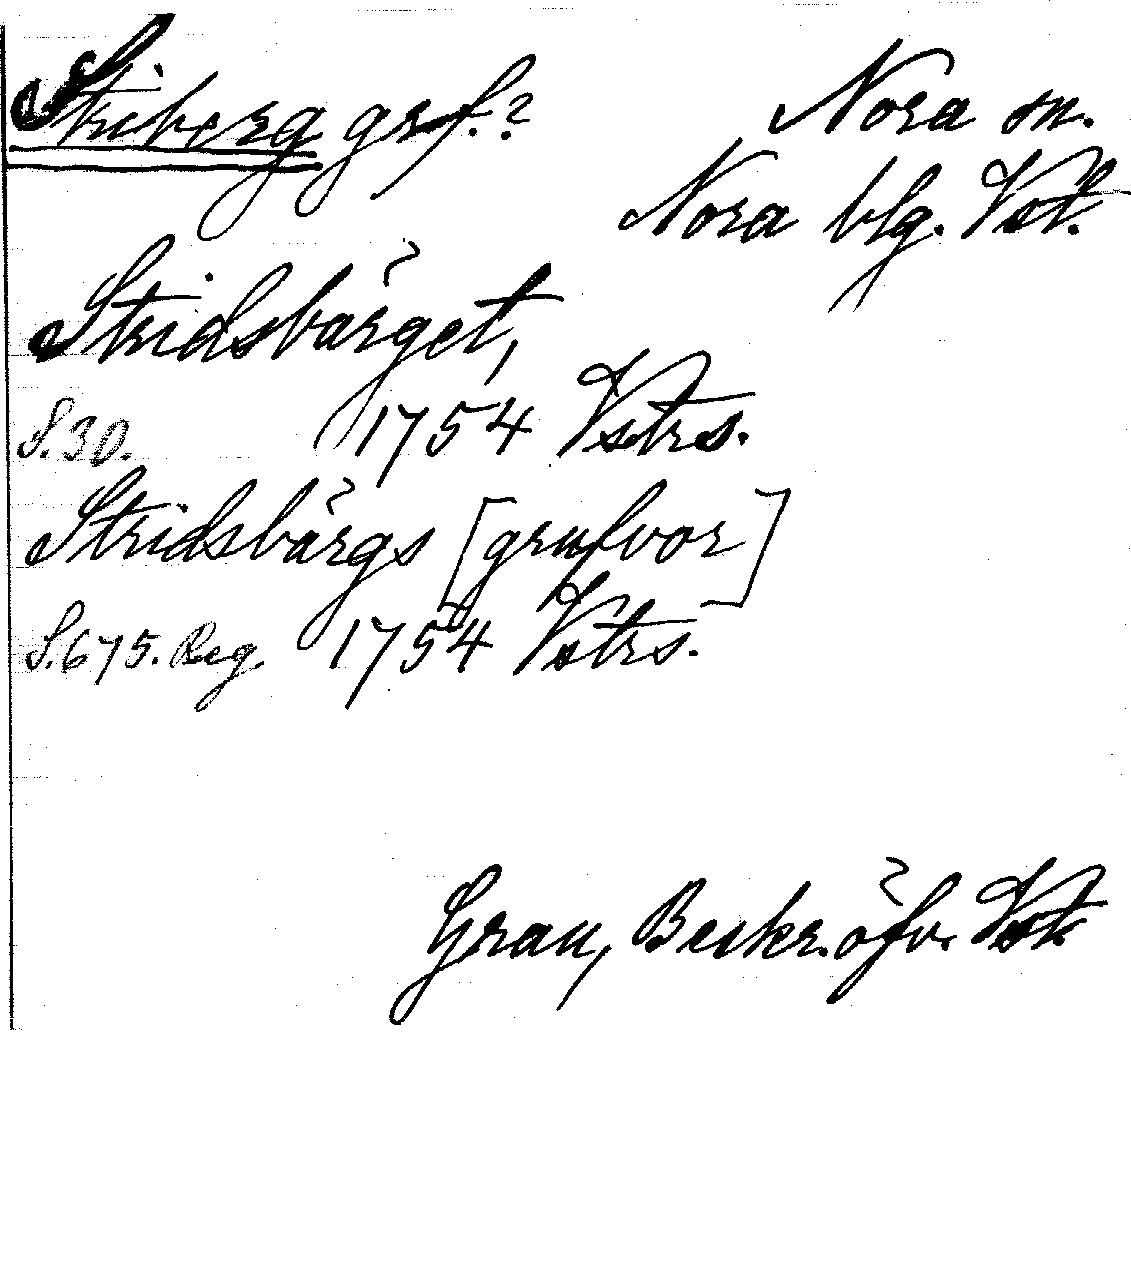 Striberg grf.? Nora sn.
Nora blg. Vstl.
Stridsbärget,
S.30. 1754 Vstrs.
Stridsbärgs [grufvor]
S.675. Reg. 1754 Vstrs.
Grau, Beskr. öfv.